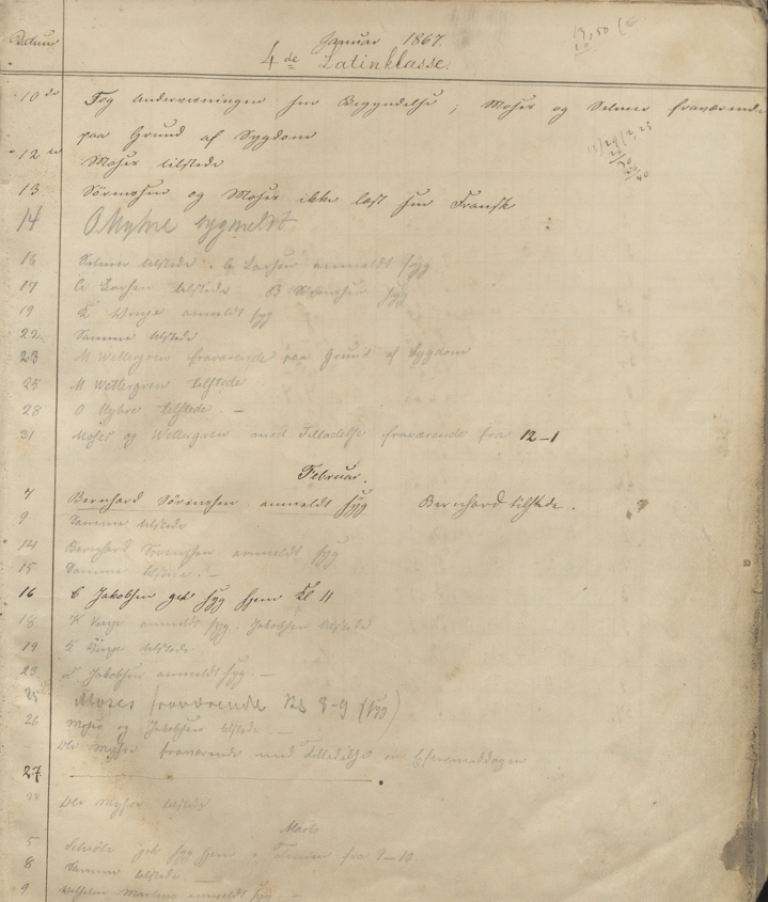 Datum
Januar 1867.
4de Latinklasse.
10de Tog Undervisningen sin Begyndelse; Moses og Selmer fraværende
paa Grund af Sygdom
12te Moses tilstede
13 Sörensen og Moses ikke læst sin Fransk
14 O Myhre sygmeldt
16 Selmer tilstede. C Larsen anmeldt syg
17 C Larsen tilstede B Sörensen syg
19 K Vinje anmeldt syg
22 Samme tilstede
23 M Wettergren fraværende paa Grund af Sygdom
25 M Wettergren tilstede
28 O Myhre tilstede. —
31 Moses og Wettergren med Tilladelse fraværende fra 12-1
Februar.
7 Bernhard Sörensen anmeldt syg Bernhard tilstede.
9 Samme tilstede
14 Bernhard Sörensen anmeldt syg
15 Samme tilstede. —
16 C Jakobsen gik syg hjem Kl 11
18 K Vinje anmeldt syg. Jakobsen tilstede
19 K Vinje tilstede
23 Jakobsen anmeldt syg. —
25 Moses fraværende Kl 8-9 (syg)
26 Moses og Jakobsen tilstede —
Ole Myhre fraværende med Tilladelse om Eftermiddagen
27
28 Ole Myhre tilstede
Marts
5 gik syg hjem fra 9-10.
8 Samme tilstede. —
9 Wilhelm Martens anmeldt syg —